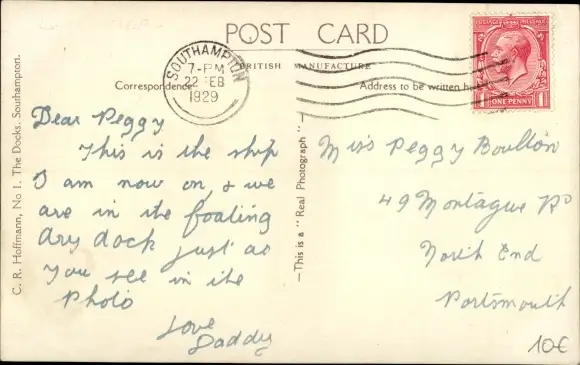 POST CARD
BRITISH MANUFACTURE
Correspondence
Address to be written he
SOUTHAMPTON
7-PM
22 FEB
1929
POSTAGE REVENUE
ONE PENNY
1
1
C. R. Hoffmann, No 1. The Docks. Southampton.
Dear Peggy
This is the ship
I am now on, & we
are in the foating
dry dock just as
you see in the
Photo
Love
Daddy
—This is a "Real Photograph"—
Miss Peggy Boulton
49 Montague Rd
North End
Portsmouth
10€